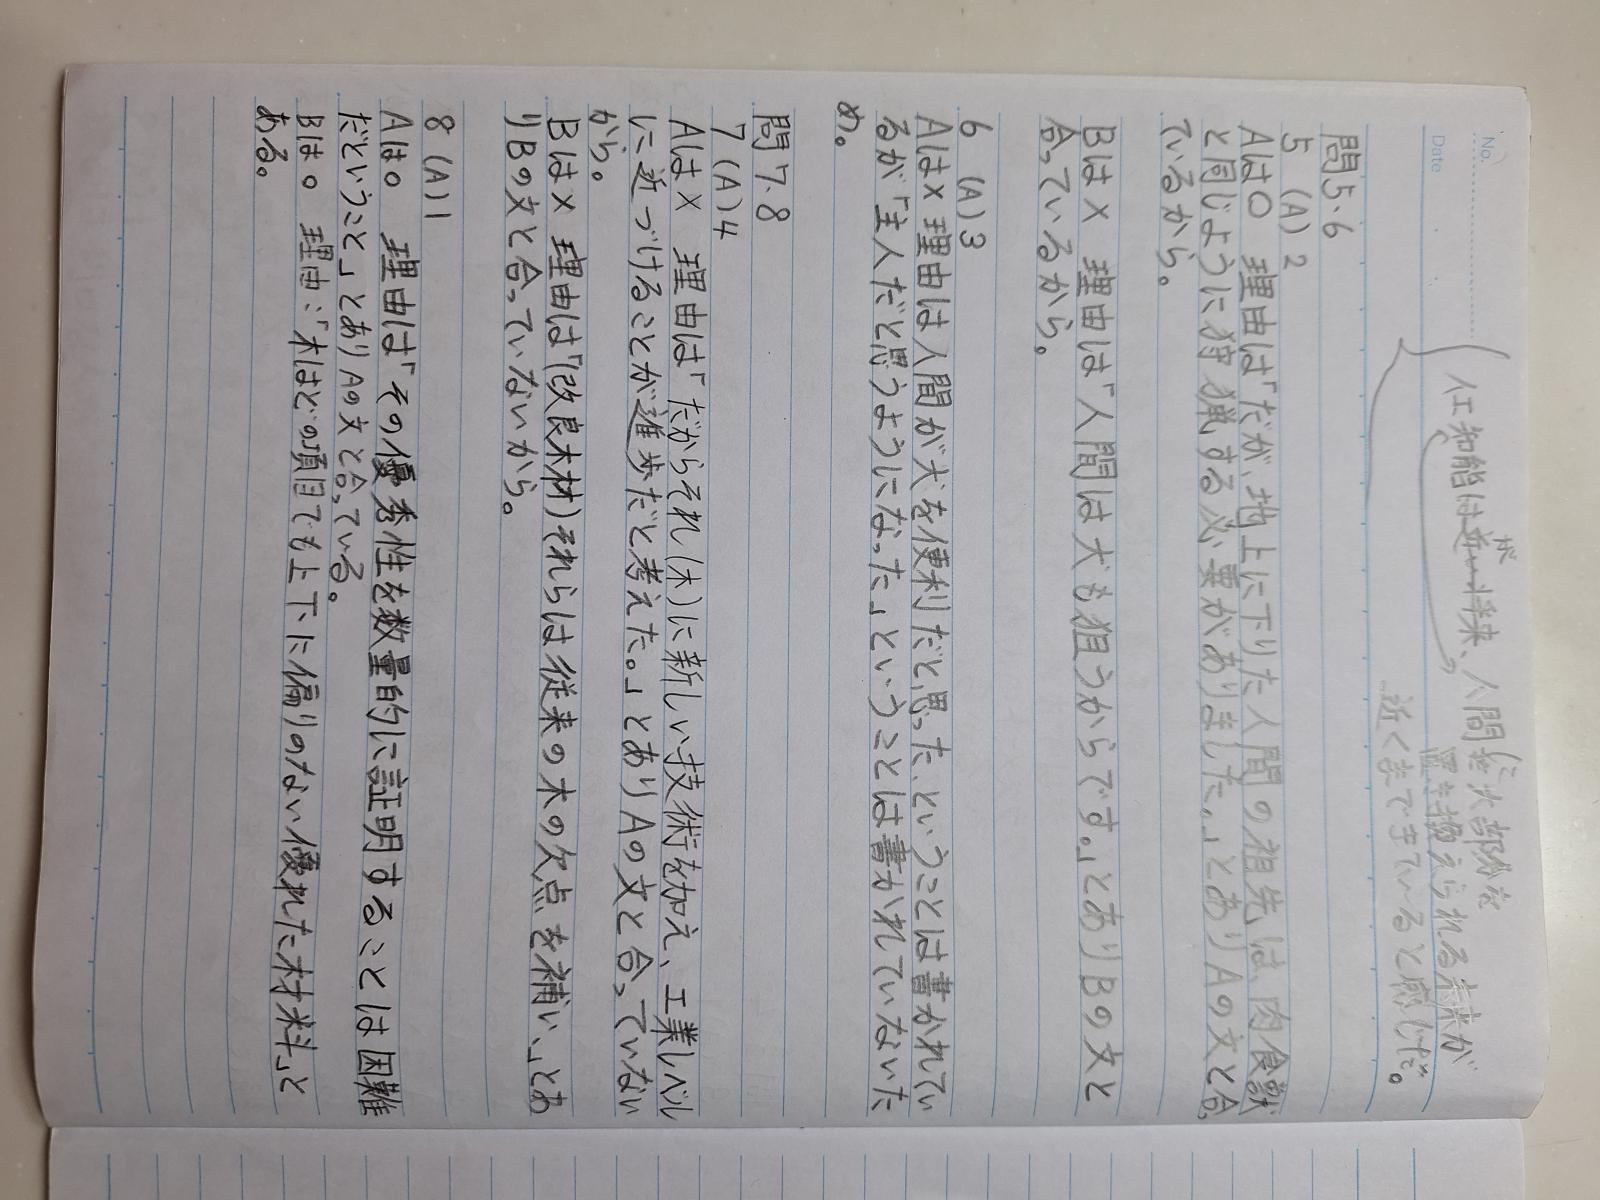 No.
Date
人工知能は近い将来、人間の大部分が
が に
置き換えられる未来が
近くまできていると感じた。
問5.6
5 (A) 2
Aは〇 理由は「だが、地上に下りた人間の祖先は、肉食獣
と同じように狩猟する必要がありました。」とありAの文と合っ
ているから。
Bは× 理由は「人間は犬も狙うからです。」とありBの文と
合っているから。
6 (A) 3
Aは× 理由は人間が犬を便利だと思った、ということは書かれてい
るが「主人だと思うようになった」ということは書かれていないた
め。
問7.8
7 (A) 4
Aは× 理由は「だからそれ(木)に新しい技術を加え、工業レベル
に近づけることが進歩だと考えた。」とありAの文と合っていない
から。
Bは× 理由は「(改良木材)それらは従来の木の欠点を補い、」とあ
りBの文と合っていないから。
8 (A) 1
Aは〇 理由は「その優秀性を数量的に証明することは困難
だということ」とありAの文と合っている。
Bは〇 理由:「木はどの項目でも上下に偏りのない優れた材料」と
ある。